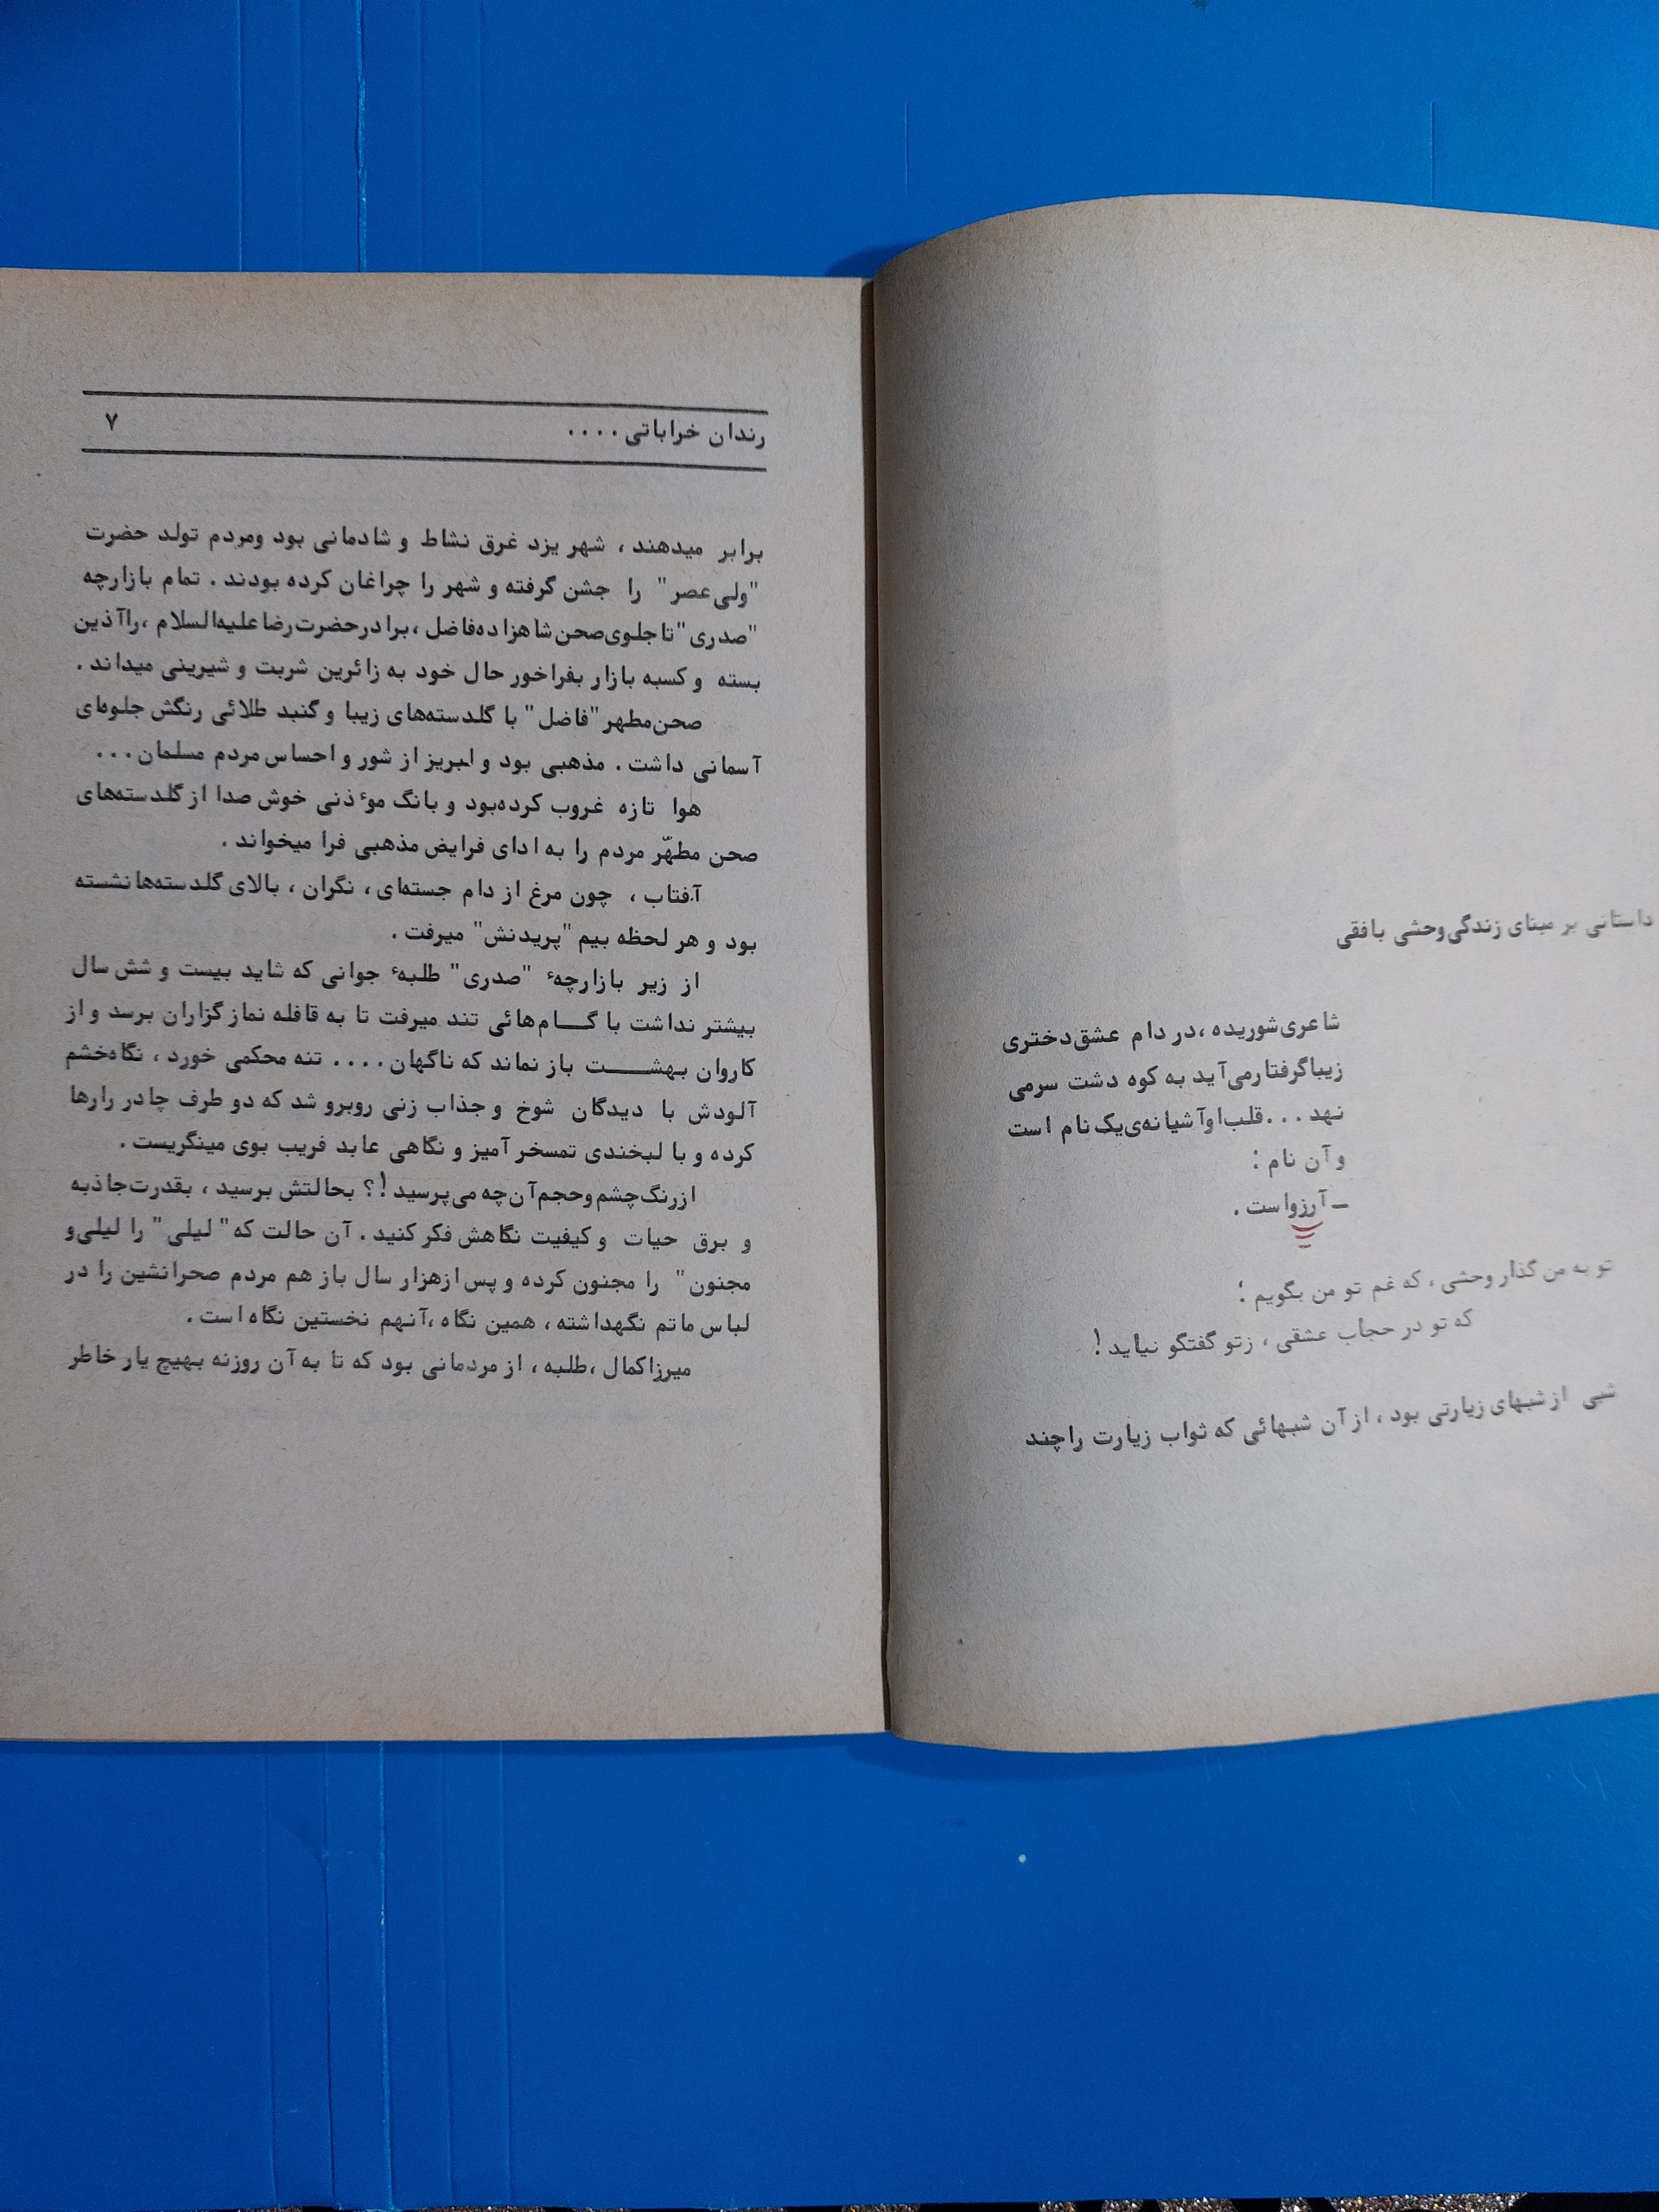 داستانی بر مبنای زندگی وحشی بافقی
شاعری شوریده ، در دام عشق دختری
زیبا گرفتار می‌آید به کوه دشت سر می
نهد . . . قلب او آشیانه‌ی یک نام است
و آن نام :
ـ آرزو است .
تو به من گذار وحشی ، که غم تو من بگویم ؛
که تو در حجاب عشقی ، زتو گفتگو نیاید !
شبی از شبهای زیارتی بود ، از آن شبهائی که ثواب زیارت را چند
رندان خراباتی . . . . ۷
برابر میدهند ، شهر یزد غرق نشاط و شادمانی بود ومردم تولد حضرت
"ولی‌عصر" را جشن گرفته و شهر را چراغان کرده بودند . تمام بازارچه
"صدری" تا جلوی صحن شاهزاده فاضل ، برادر حضرت رضا علیه‌السلام ، را آذین
بسته و کسبه بازار بفراخور حال خود به زائرین شربت و شیرینی میداند .
صحن مطهر "فاضل" با گلدسته‌های زیبا و گنبد طلائی رنگش جلوه‌ای
آسمانی داشت . مذهبی بود و لبریز از شور و احساس مردم مسلمان . . .
هوا تازه غروب کرده‌بود و بانگ موٴذنی خوش صدا از گلدسته‌های
صحن مطهّر مردم را به ادای فرایض مذهبی فرا میخواند .
آفتاب ، چون مرغ از دام جسته‌ای ، نگران ، بالای گلدسته‌ها نشسته
بود و هر لحظه بیم "پریدنش" میرفت .
از زیر بازارچهٴ "صدری" طلبهٴ جوانی که شاید بیست و شش سال
بیشتر نداشت با گـــام‌هائی تند میرفت تا به قافله نماز گزاران برسد و از
کاروان بهشـــت باز نماند که ناگهان . . . . تنه محکمی خورد ، نگاه‌خشم
آلودش با دیدگان شوخ و جذاب زنی روبرو شد که دو طرف چادر را رها
کرده و با لبخندی تمسخر آمیز و نگاهی عابد فریب بوی مینگریست .
از رنگ چشم و حجم آن چه می‌پرسید !؟ بحالتش برسید ، بقدرت جاذبه
و برق حیات و کیفیت نگاهش فکر کنید . آن حالت که "لیلی" را لیلی و
مجنون" را مجنون کرده و پس از هزار سال باز هم مردم صحرانشین را در
لباس ماتم نگهداشته ، همین نگاه ، آنهم نخستین نگاه است .
میرزا کمال ، طلبه ، از مردمانی بود که تا به آن روزنه بهیچ یار خاطر